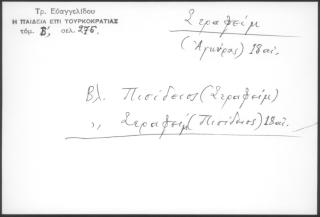 Τρ. Εὐαγγελίδου
Η ΠΑΙΔΕΙΑ ΕΠΙ ΤΟΥΡΚΟΚΡΑΤΙΑΣ
τόμ. Β', σελ. 276.
Σεραφείμ
(Ἀγκύρας) 18 αἰ.
Βλ. Πισίδειος (Σεραφείμ)
,, Σεραφείμ (Πισίδειος) 18 αἰ.